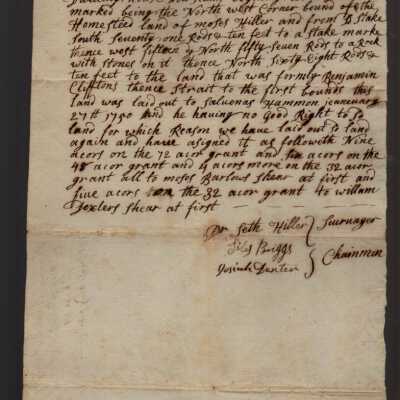 marked being the North west Corner bound of the
Homested land of moses Hiller and from sd Stake
South Seventy one Rods & ten feet to a stake marke
thence west sixteen & North fifty Seven Rods to a Rock
with stones on it thence North Sixty Eight Rods &
ten feet to the land that was formly Benjamin
Cliftons thence Strait to the first bounds this
land was laid out to Hammon jenneuary
27th 1750 and he having no Good Right to so
land for which Reason we have laid out sd land
again and have asigned it as followeth Nine
acors on the 72 acor grant and six acors on the
48 acor grant and acors more on the 32 acor
grant all to moses Barlows shear at first and
five acors on the 32 acor grant to willam
Dexlers shear at first
Pr Seth Hiller } Surnayer
Silas Briggs
Josiah } Chainmen